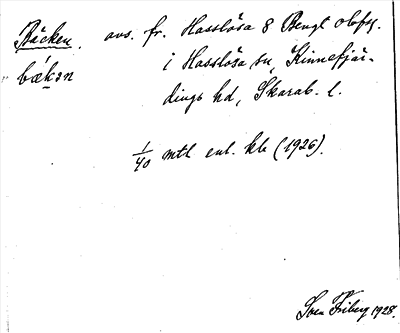 Bäcken. avs. fr. Hasslösa 8 Bengt Olofsg.
bækən i Hasslösa sn, Kinnefjär-
dings hd, Skarab. l.
1/40 mtl enl. kb (1926).
Sven Friberg 1928.